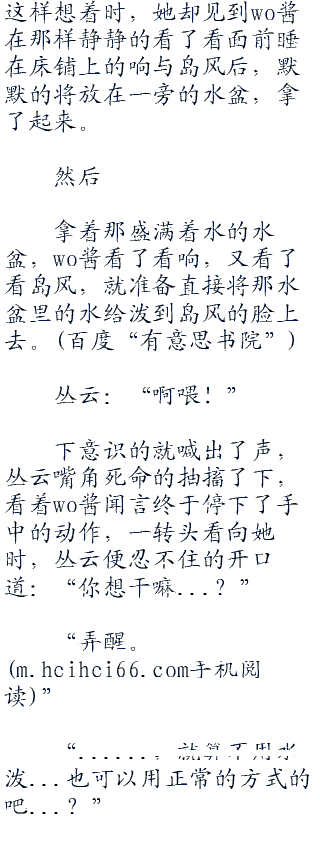 这样想着时，她却见到wo酱
在那样静静的看了看面前睡
在床铺上的响与岛风后，默
默的将放在一旁的水盆，拿
了起来。
然后
拿着那盛满着水的水
盆，wo酱看了看响，又看了
看岛风，就准备直接将那水
盆里的水给泼到岛风的脸上
去。(百度“有意思书院”)
丛云：“啊喂！”
下意识的就喊出了声，
丛云嘴角死命的抽搐了下，
看着wo酱闻言终于停下了手
中的动作，一转头看向她
时，丛云便忍不住的开口
道：“你想干嘛...？”
“弄醒。
(m.hcihci66.com手机阅
读)”
“......，就算不用水
泼...也可以用正常的方式的
吧...？”